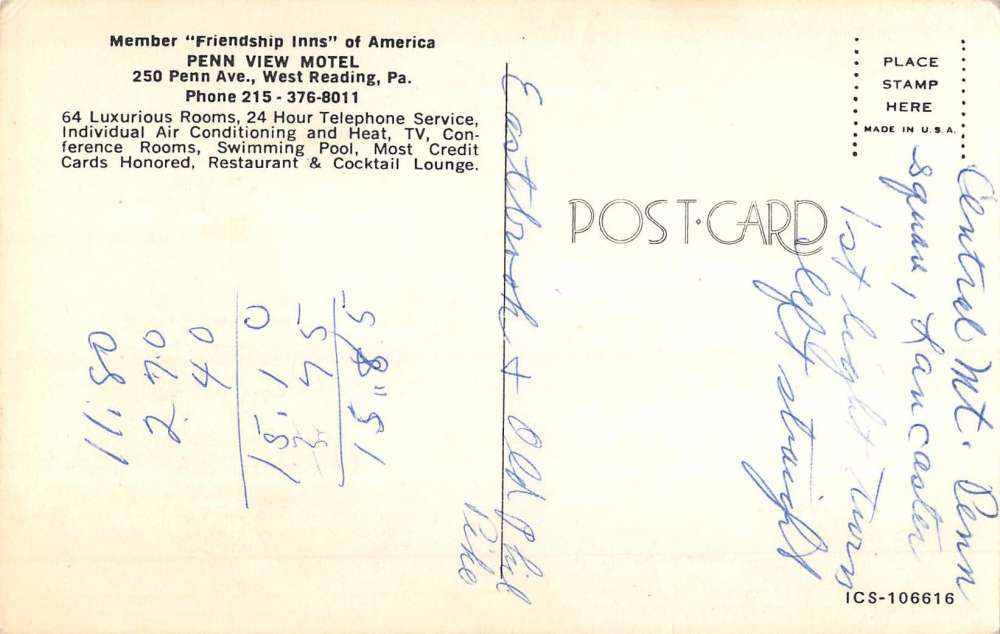 Member "Friendship Inns" of America
PENN VIEW MOTEL
250 Penn Ave., West Reading, Pa.
Phone 215 - 376-8011
64 Luxurious Rooms, 24 Hour Telephone Service,
Individual Air Conditioning and Heat, TV, Con-
ference Rooms, Swimming Pool, Most Credit
Cards Honored, Restaurant & Cocktail Lounge.
PLACE
STAMP
HERE
MADE IN U.S.A.
POST-CARD
Central Mt. Penn
square, Lancaster
1st light turn
left straight
Eastbrook + Old Phil
Pike
11.50
2.70
40
15.10
75
ICS-106616